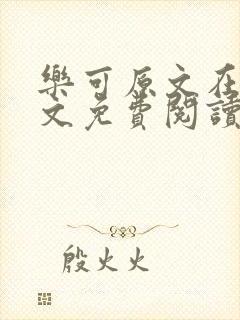 樂可原文在
文免費閱讀
殷火火